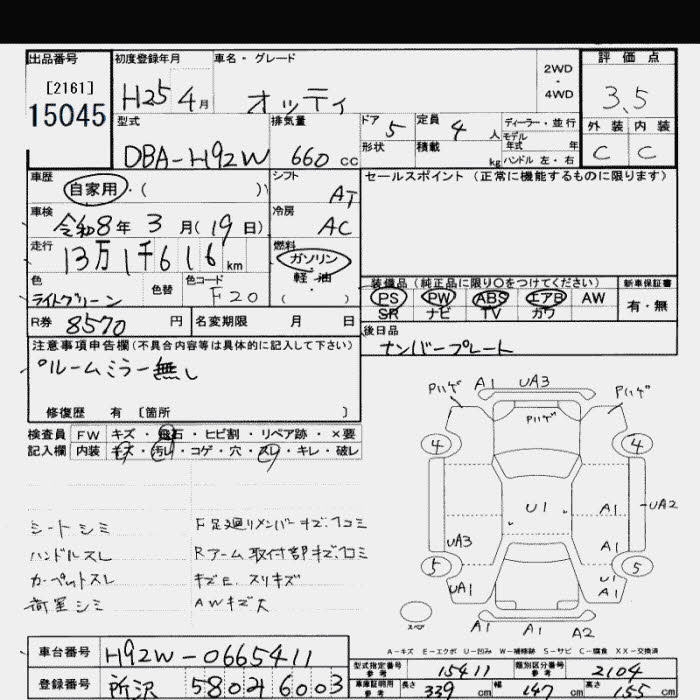 出品番号
[2161]
15045
初度登録年月
H25 4月
車名・グレード
オッティ
2WD
・
4WD
評価点
3.5
型式
DBA-H92W
排気量
660 cc
ドア
5
定員
4 人
ディーラー・並行
モデル
年式 年
外装 内装
C C
形状
積載 kg
ハンドル 左・右
車歴
自家用・( )
シフト
AT
セールスポイント (正常に機能するものに限ります)
車検
令和8年 3月(19日)
冷房
AC
走行
13万1千616km
燃料
ガソリン
軽・油
( )
色
ライトグリーン
色替
色コード
F20
装備品(純正品に限り○をつけてください)
PS PW ABS エアB AW
SR ナビ TV カワ
新車保証書
有・無
R券 8570 円
名変期限 月 日
後日品
ナンバープレート
注意事項申告欄(不具合内容等は具体的に記入して下さい)
ルームミラー無し
修復歴 有 〔箇所 〕
検査員
記入欄
FW キズ・飛石・ヒビ割・リペア跡・×要
内装 キズ・汚レ・コゲ・穴・スレ・キレ・破レ
シートシミ
ハンドルスレ
カーペットスレ
荷室シミ
F足廻リメンバーキズ、凹コミ
Rアーム取付部キズ、凹コミ
キズE、スリキズ
AWキズ大
Pハゲ A1 UA3 Pハゲ
Pハゲ
4 4
U1 A1 UA2
UA3 A1
5 5
UA1 U1 A1
スペア
A1 A1 A2
A-キズ E-エクボ U-凹み W-補修跡 S-サビ C-腐食 XX-交換済
車台番号
H92W-0665411
登録番号
所沢 580 2 6003
型式指定番号
参考
15411
類別区分番号
参考
2104
車庫証明用
参考
長さ 339 cm
幅 147 cm
高さ 155 cm